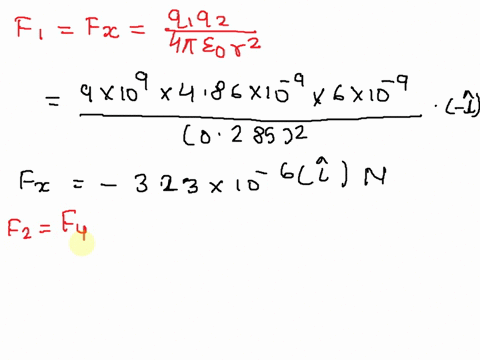 F₁ = Fx = q₁q₂ / 4πε₀r²
= 9×10⁹ × 4.86×10⁻⁹ × 6×10⁻⁹ / (0.285)² · (-î)
Fx = - 323×10⁻⁶(î) N
F₂ = Fy